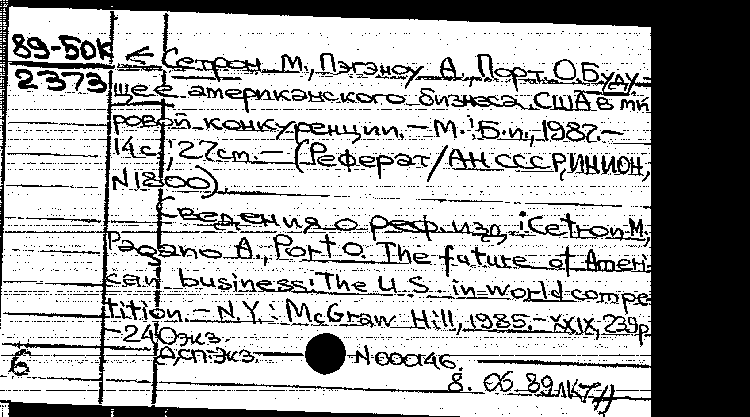 89-50К
2373
< Сетрон М., Пэгэноу А., Порт О. Буду-
щее американского бизнеса. США в ми
ровой конкуренции. – М.: Б.и., 1987. –
14 с.; 27 см. – (Реферат/АН СССР, ИНИОН,
N 1800).
Сведения о реф. изд.: Cetron M.,
Pagano A., Port O. The future of Ameri-
can business: The U.S. in world compe-
tition. – N.Y.: McGraw Hill, 1985. – XXIX, 239 p.
– 240 экз.
ДСП. экз. N 000146.
6
8. 06. 89